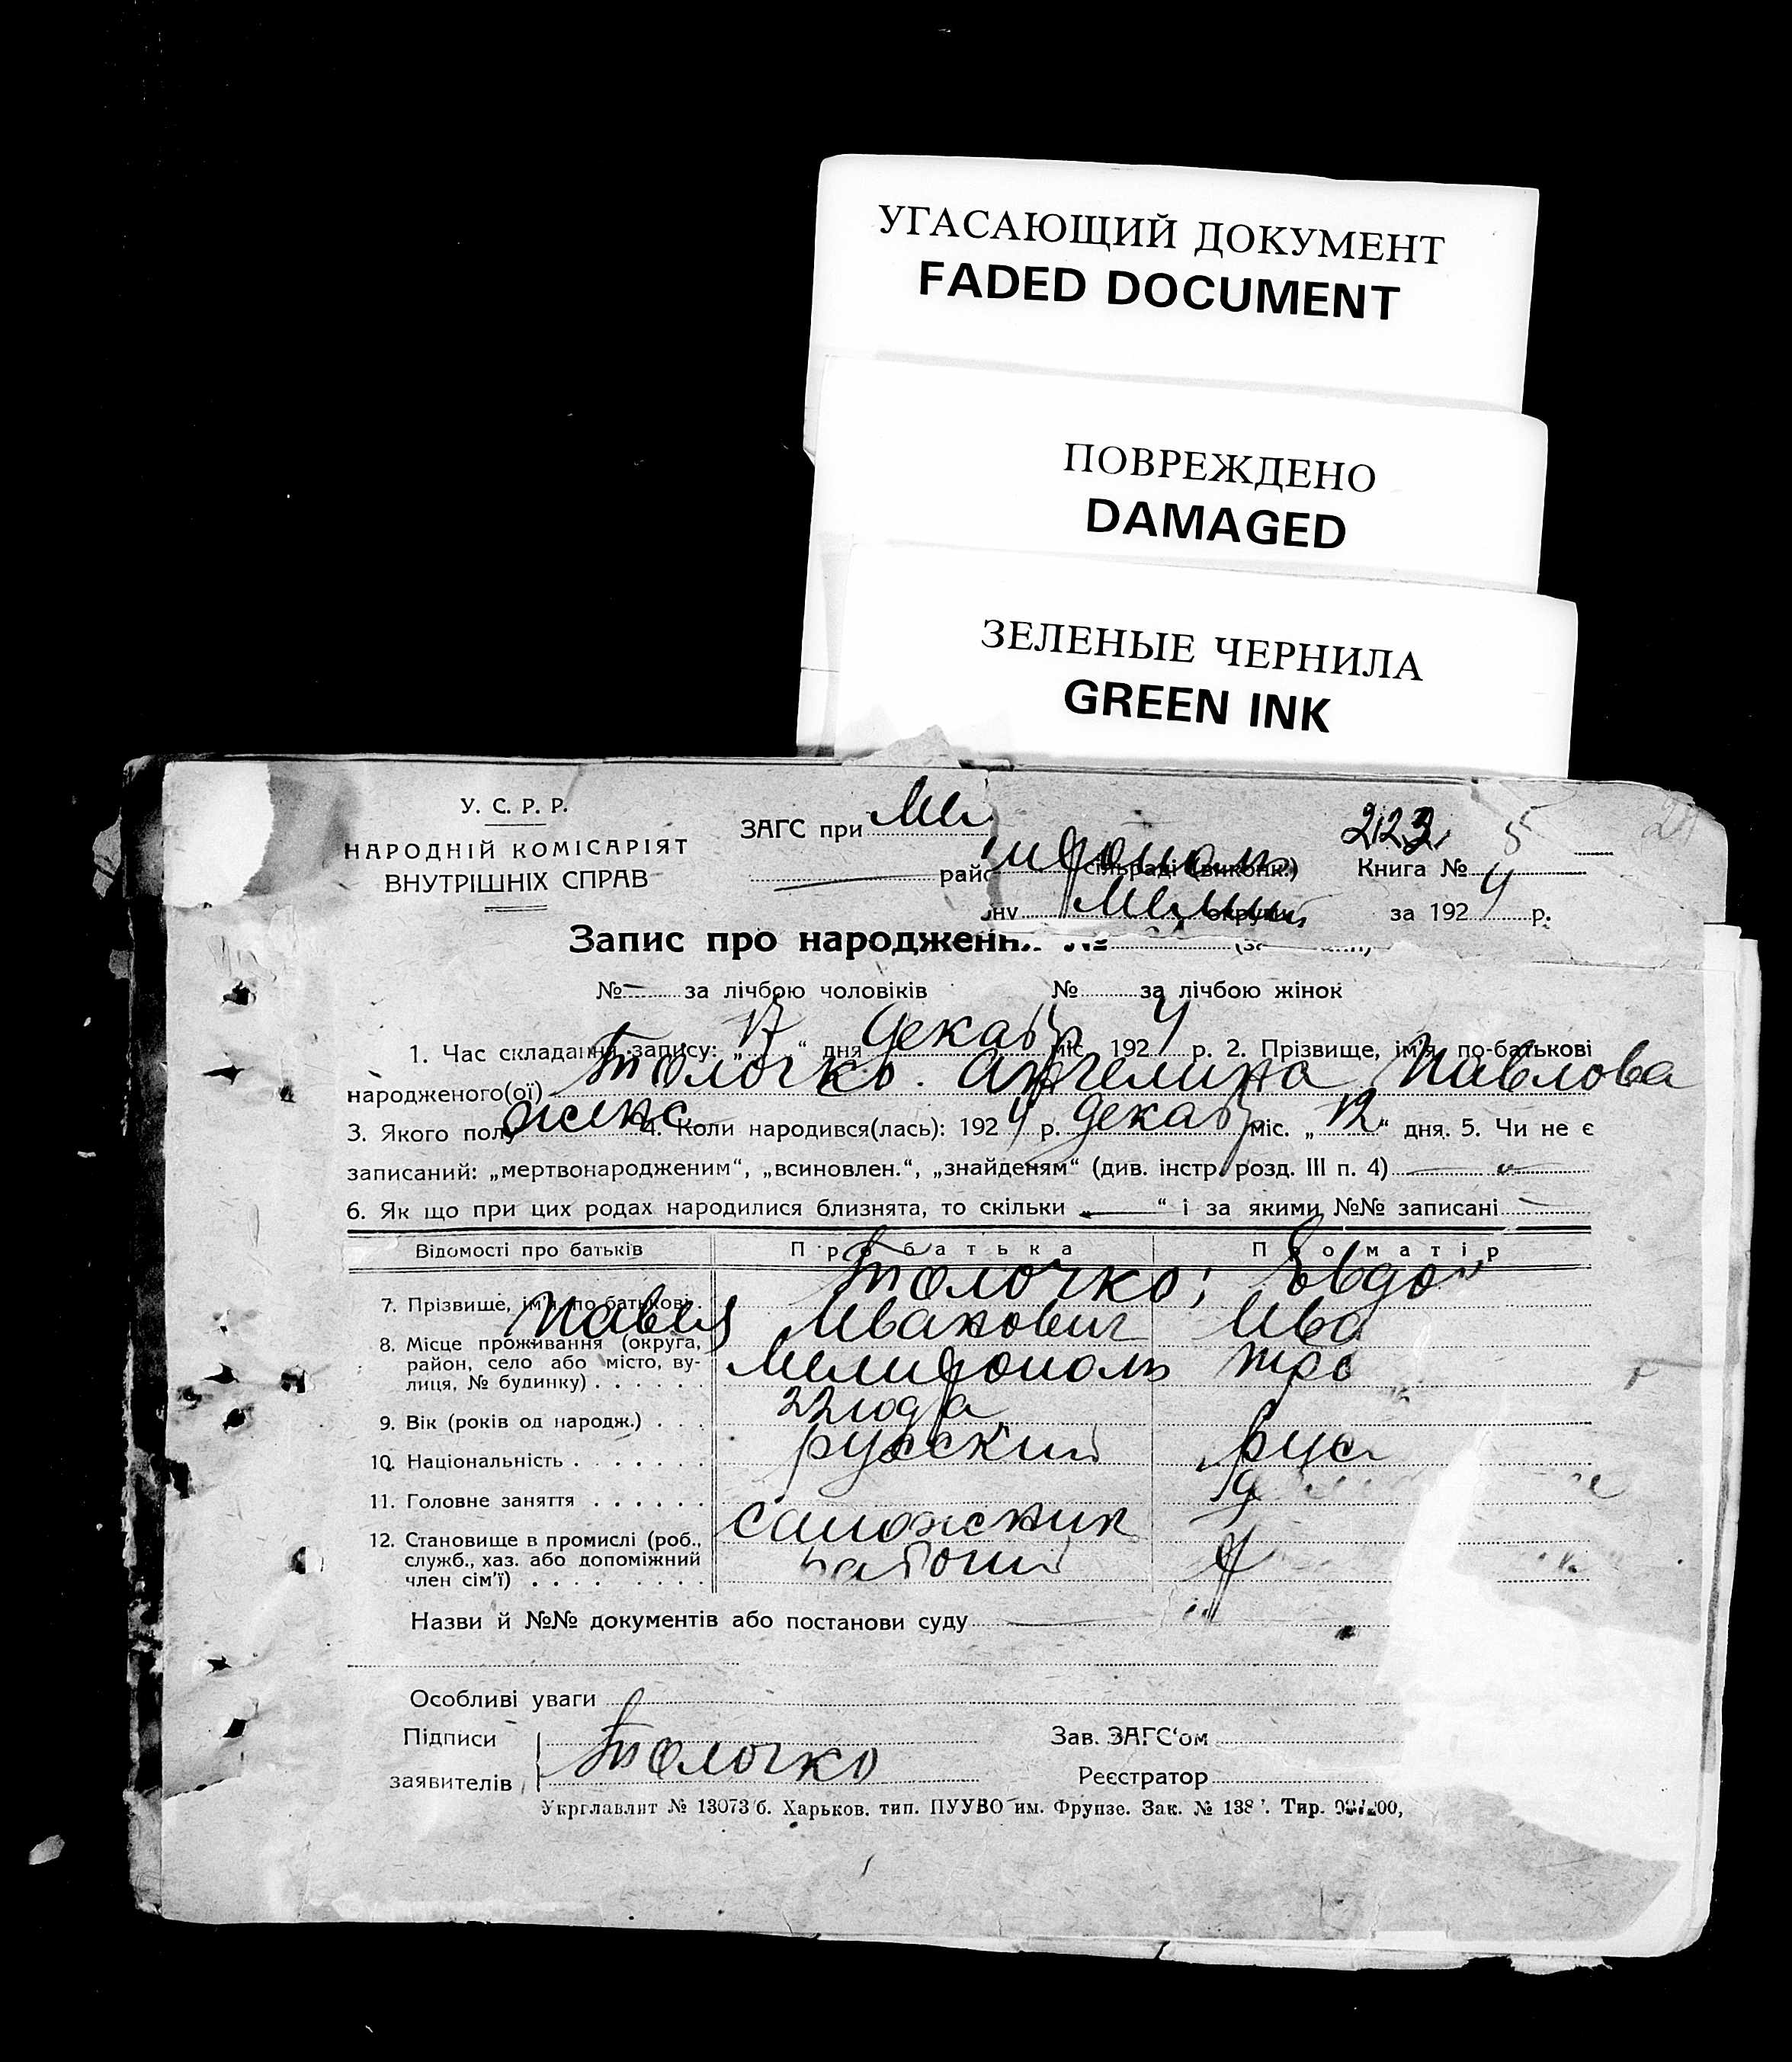 УГАСАЮЩИЙ ДОКУМЕНТ
FADED DOCUMENT
ПОВРЕЖДЕНО
DAMAGED
ЗЕЛЕНЫЕ ЧЕРНИЛА
GREEN INK
У. С. Р. Р.
НАРОДНІЙ КОМІСАРІЯТ
ВНУТРІШНІХ СПРАВ
ЗАГС при
сільраді (виконк.)
223
Книга № 4
за 1924 р.
Запис про народження №
№ за лічбою чоловіків № за лічбою жінок
1. Час складання запису: „17“ дня декабр міс. 1924 р. 2. Прізвище, ім'я, по-батькові
народженого(ої) Толочко Ангелина Павлова
3. Якого полу женс 4. Коли народився(лась): 1924 р. декабр міс. „12“ дня. 5. Чи не є
записаний: „мертвонародженим“, „всиновлен.“, „знайденям“ (див. інстр. розд. III п. 4)
6. Як що при цих родах народилися близнята, то скільки “ і за якими №№ записані
Відомості про батьків Про батька Про матір
7. Прізвище, ім'я, по-батькові Толочко; Павел Иванович Евдо Ива
8. Місце проживання (округа, район, село або місто, вулиця, № будинку) Мелитополь
9. Вік (років од народж.) 22 года
10. Національність русский рус
11. Головне заняття сапожник
12. Становище в промислі (роб., служб., хаз. або допоміжний член сім'ї)
Назви й №№ документів або постанови суду
Особливі уваги
Підписи заявителів Толочко
Зав. ЗАГС'ом
Реєстратор
Укрглавлит № 13073 б. Харьков. тип. ПУУВО им. Фрунзе. Зак. № 138 Тир.